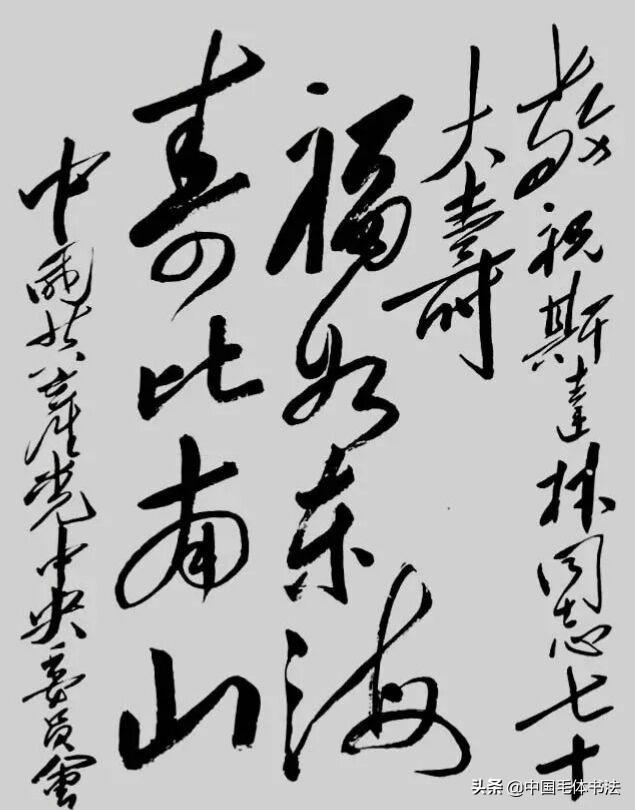 敬祝斯達林同志七十
大壽
福如东海
寿比南山
中國共产党中央委員會
头条 @中国毛体书法